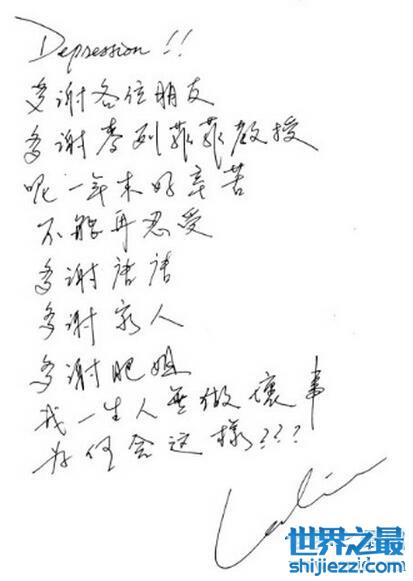 Depression!!
多谢各位朋友
多谢李列菲菲教授
呢一年来好辛苦
不能再忍受
多谢唐唐
多谢家人
多谢肥姐
我一生人無做壞事
为何会这樣???
Leslie
世界之最
shijiezzi.com